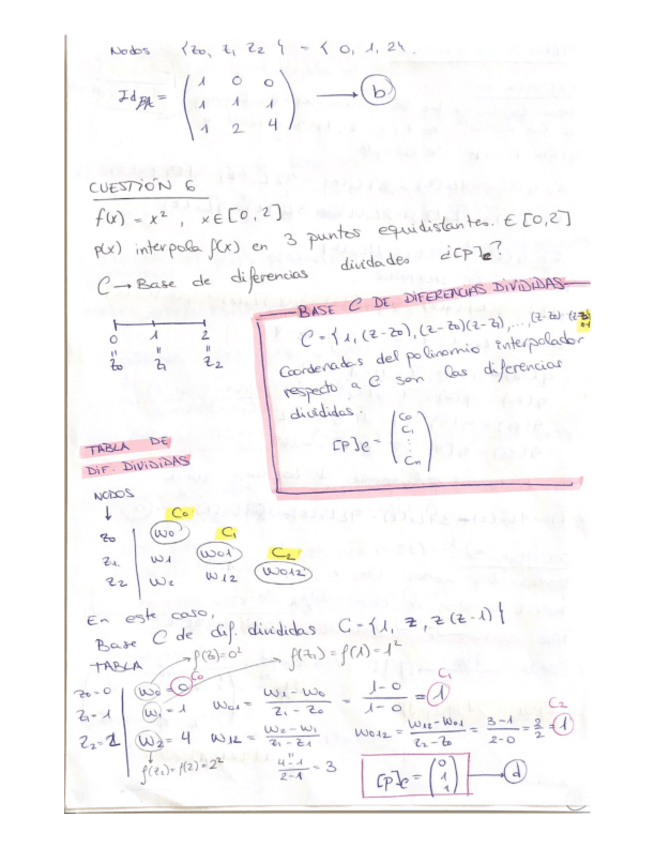 Nodos {z0, z1 z2} = {0, 1, 2}.
Id = ( 1 0 0
1 1 1 → (b)
1 2 4 )
CUESTIÓN 6
f(x) = x², x∈[0,2]
p(x) interpola f(x) en 3 puntos equidistantes. ∈[0,2]
C → Base de diferencias divididas ¿[P]c?
BASE C DE DIFERENCIAS DIVIDIDAS
C = {1, (z-z0), (z-z0)(z-z1), ..., (z-z0)
Coordenadas del polinomio interpolador
respecto a C son las diferencias
divididas.
[P]c = ( C0
C1
⋮
Cn )
0 1 2
z0 z1 z2
TABLA DE
DIF. DIVIDIDAS
NODOS
↓ C0 C1 C2
z0 | W0
z1 | W1 W01
z2 | W2 W12 W012
En este caso,
Base C de dif. divididas C = {1, z, z(z-1)}
TABLA → f(z0)=0² → f(z1)=f(1)=1²
z0=0 | W0 = 0 C0 W01 = (W1-W0)/(z1-z0) = (1-0)/(1-0) = 1 C1
z1=1 | W1 = 1
z2=2 | W2 = 4 W12 = (W2-W1)/(z1-z1) W012 = (W12-W01)/(z2-z0) = (3-1)/(2-0) = 2/2 = 1 C2
f(z2)=f(2)=2² (4-1)/(2-1) = 3
[P]c = ( 0
1 → (d)
1 )